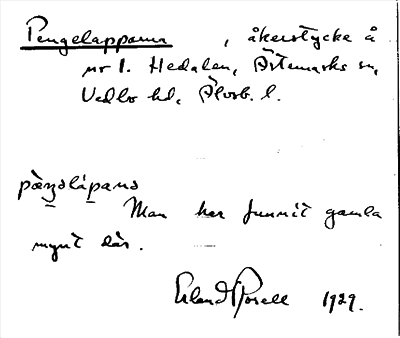 Pengelapparna, åkerstycke å
nr 1. Hedalen, Östemarks sn,
Vedbo hd, Älvsb. l.
pæŋəlápaná
Man har funnit gamla
mynt där.
Erland Rosell 1929.